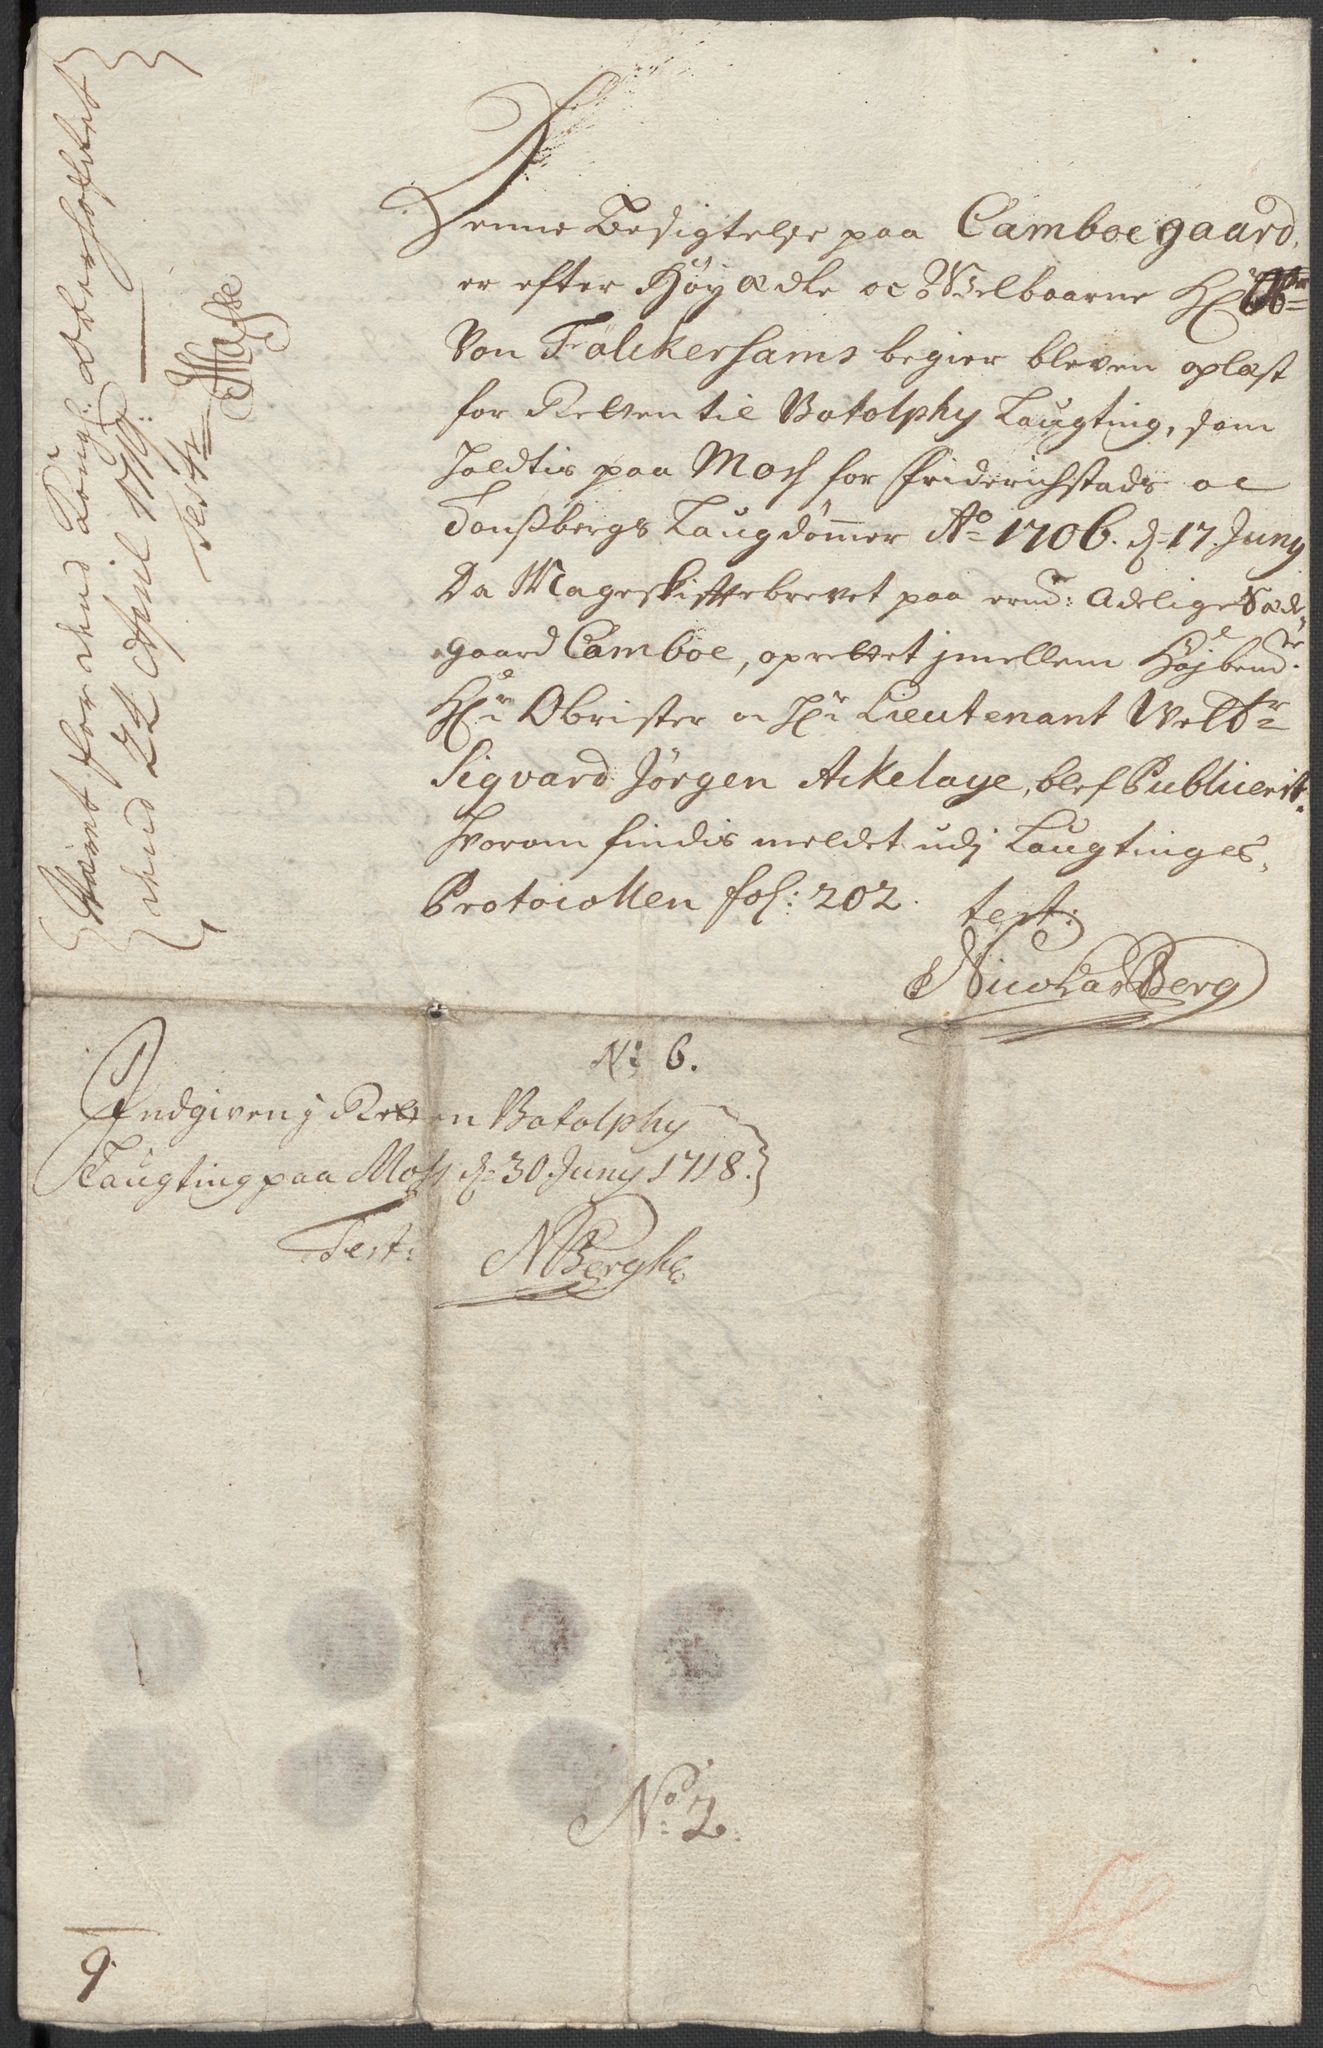 Denne Besigtelse paa Camboe gaard,
er efter Höy ædle oc Welbaarne H:r
Von Fölckersams begier bleven oplæst
for Retten til Botolphy Laugting, som
holdtis paa Moss for Friderichstads oc
Tonsbergs Laugdömmer Ao 1706. d. 17. Juny
Da Mageskiftebrevet paa ermd: Adelige Sæde,,
gaard Camboe, oprettet jmellem Höjbemte:
Hr: Obrister oc Hr: Lieutenant Welbr
Sigvard Jörgen Akelaye, blef Publicerit.
Hvorom findis meldet udj Laugtinges,
Protocollen fol: 202. test:
Nicolas Berg
No 6.
Indgiven j Retten Botolphy
Laugting paa Moss d. 30. Juny 1718.
Test: NBergh
No 2.
9.
for dend Kongl: Oberhofret
dend 24 April 1719:
Test